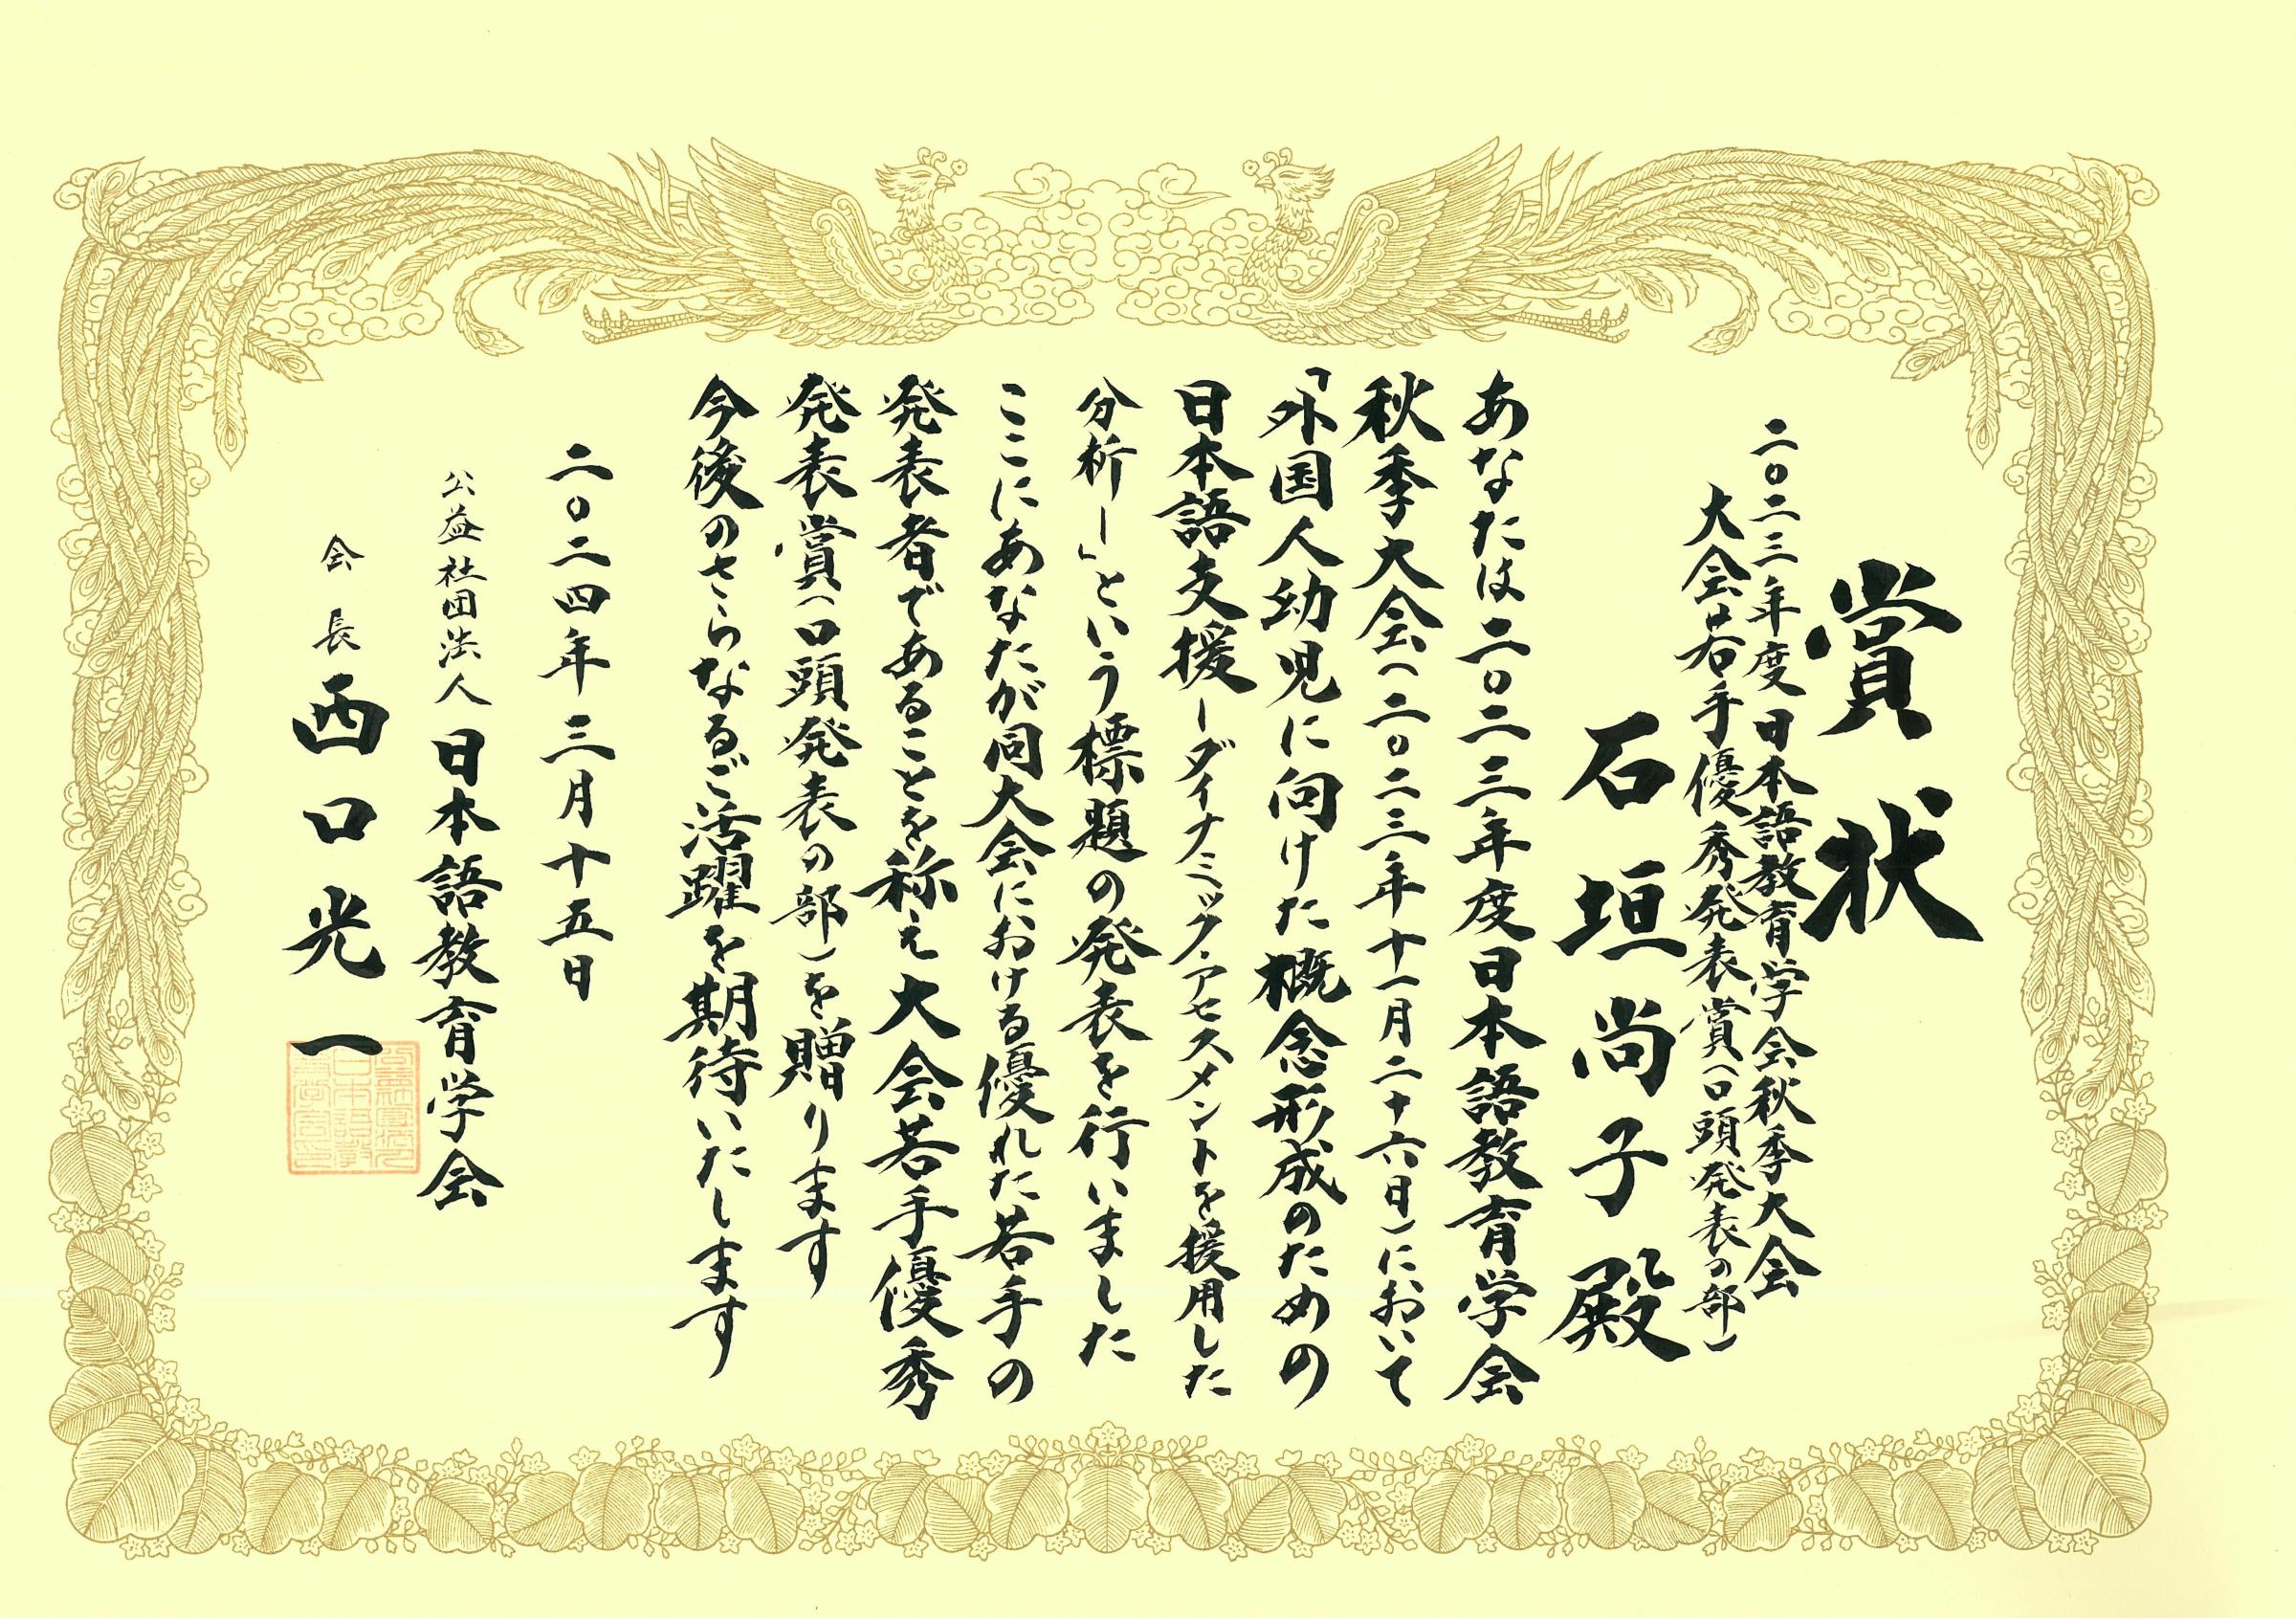 賞状
二〇二三年度日本語教育学会秋季大会
大会若手優秀発表賞（口頭発表の部）
石垣尚子殿
あなたは二〇二三年度日本語教育学会
秋季大会（二〇二三年十一月二十六日）において
「外国人幼児に向けた概念形成のための
日本語支援ーダイナミック・アセスメントを援用した
分析ー」という標題の発表を行いました
ここにあなたが同大会における優れた若手の
発表者であることを称え大会若手優秀
発表賞（口頭発表の部）を贈ります
今後のさらなるご活躍を期待いたします
二〇二四年三月十五日
公益社団法人日本語教育学会
会長西口光一